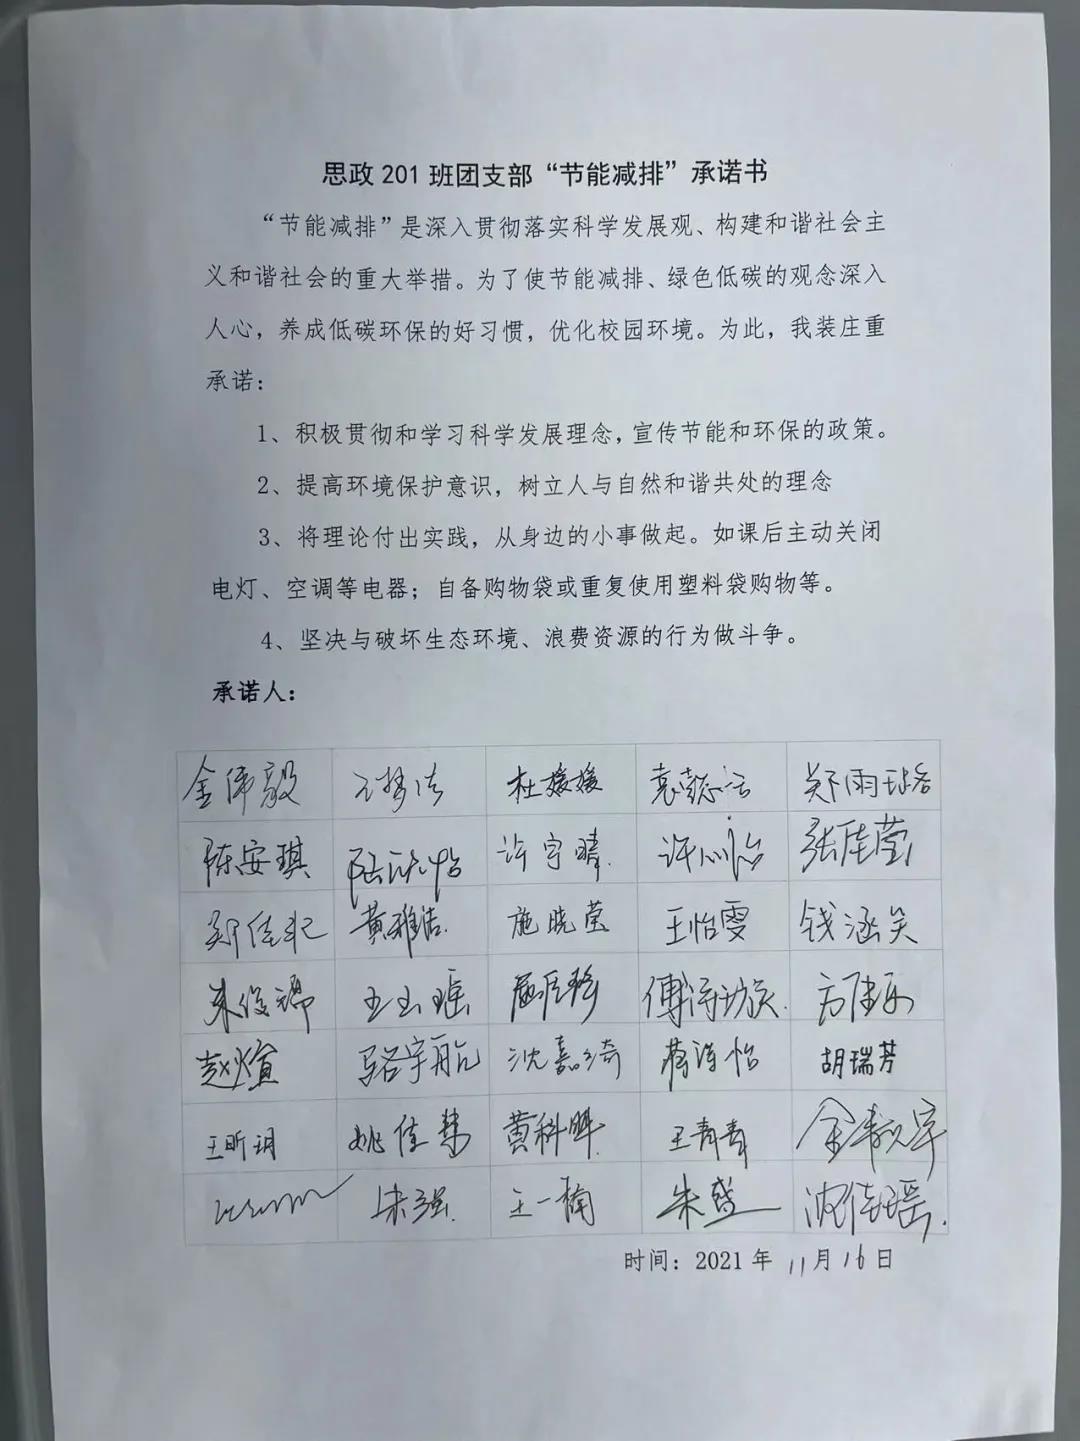 思政 201 班团支部“节能减排”承诺书
“节能减排”是深入贯彻落实科学发展观、构建和谐社会主
义和谐社会的重大举措。为了使节能减排、绿色低碳的观念深入
人心，养成低碳环保的好习惯，优化校园环境。为此，我装庄重
承诺：
1、积极贯彻和学习科学发展理念，宣传节能和环保的政策。
2、提高环境保护意识，树立人与自然和谐共处的理念
3、将理论付出实践，从身边的小事做起。如课后主动关闭
电灯、空调等电器；自备购物袋或重复使用塑料袋购物等。
4、坚决与破坏生态环境、浪费资源的行为做斗争。
承诺人：
金伟毅 杜媛媛
陈安琪 许宇晴 张佳莹
黄雅洁 施晓莹 王怡雯 钱涵笑
朱俊瑞 王玉瑶
赵煊 骆宇航 沈嘉琦 胡瑞芳
王昕玥 姚佳慧 黄科晔 王青青
朱强 王一楠 朱盛 沈佳瑶
时间：2021 年 11 月 16 日